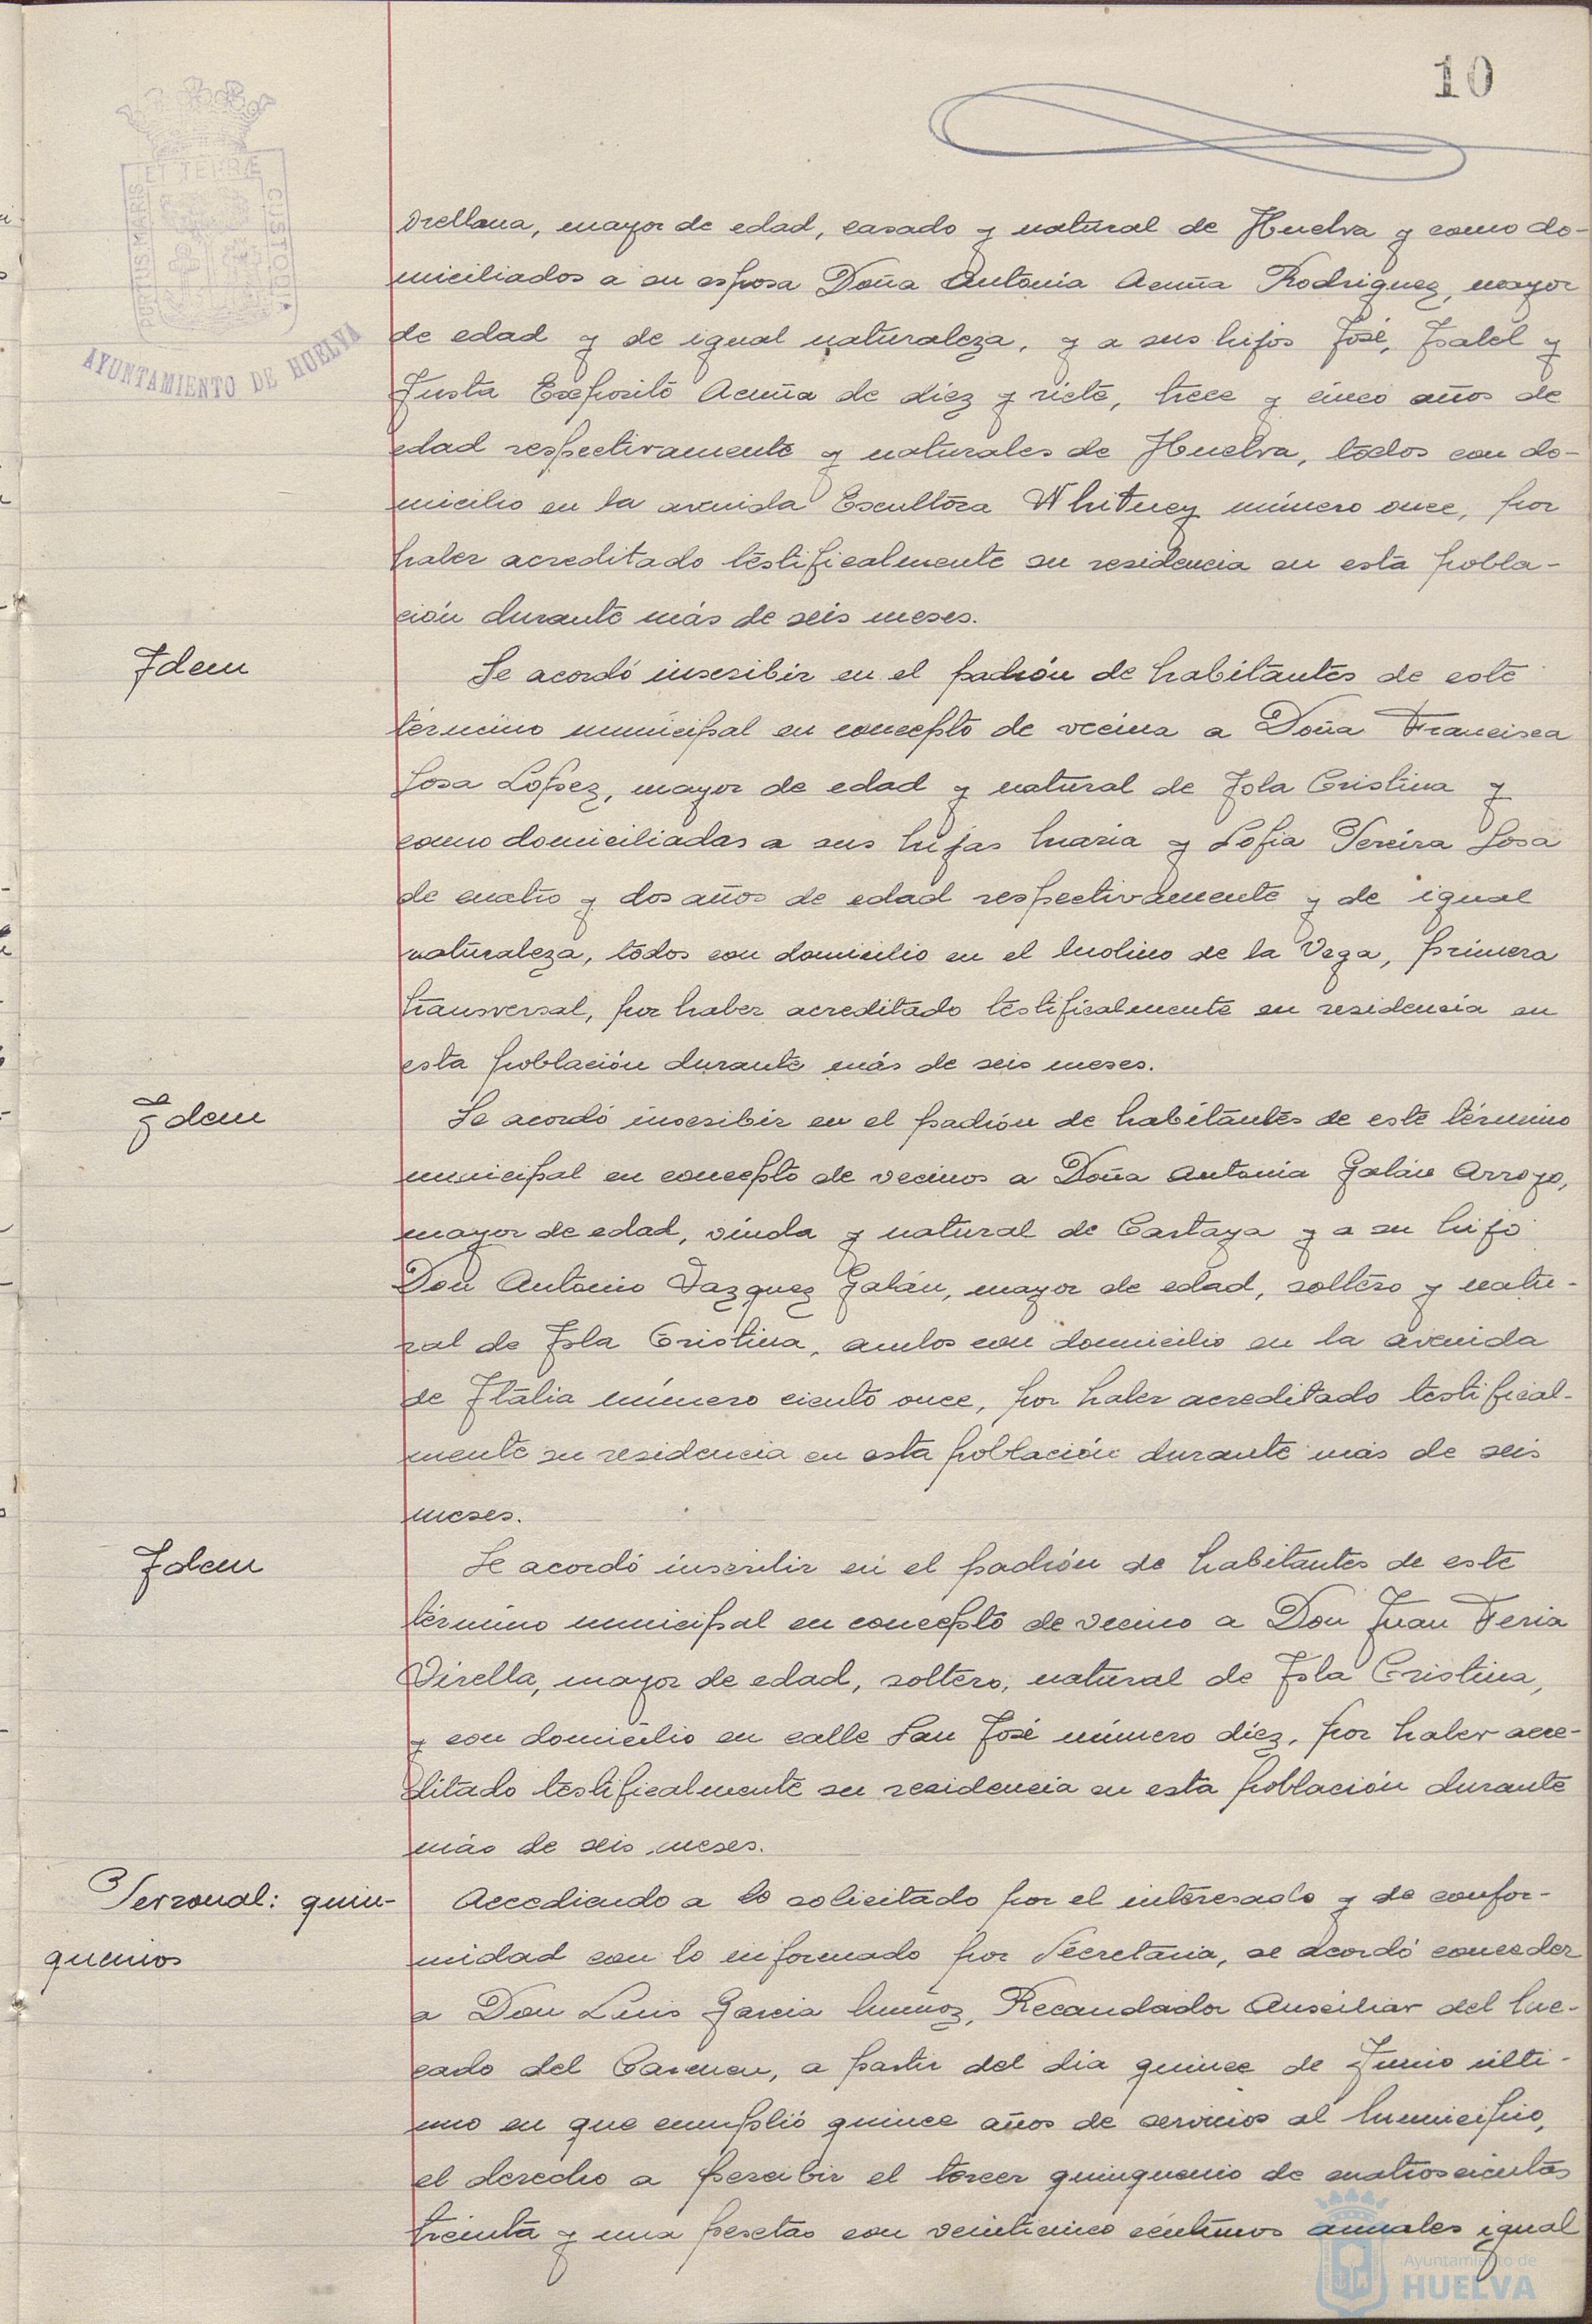 10
PORTUS MARIS
ET TERRÆ
CUSTODIA
AYUNTAMIENTO DE HUELVA
Orellana, mayor de edad, casado y natural de Huelva y como do-
miciliados a su esposa Doña Antonia Acuña Rodriguez, mayor
de edad y de igual naturaleza, y a sus hijos José, Isabel y
Justa Expósito Acuña de diez y siete, trece y cinco años de
edad respectivamente y naturales de Huelva, todos con do-
micilio en la avenida Escultora Whitney número once, por
haber acreditado testificalmente su residencia en esta pobla-
ción durante más de seis meses.
Idem
Se acordó inscribir en el padrón de habitantes de este
término municipal en concepto de vecina a Doña Francisca
Sosa López, mayor de edad y natural de Isla Cristina y
como domiciliadas a sus hijas Maria y Sofia Pereira Sosa
de cuatro y dos años de edad respectivamente y de igual
naturaleza, todos con domicilio en el Molino de la Vega, primera
transversal, por haber acreditado testificalmente su residencia en
esta población durante más de seis meses.
Idem
Se acordó inscribir en el padrón de habitantes de este término
municipal en concepto de vecinos a Doña Antonia Galán Arroyo,
mayor de edad, viuda y natural de Cartaya y a su hijo
Don Antonio Vazquez Galán, mayor de edad, soltero y natu-
ral de Isla Cristina, ambos con domicilio en la avenida
de Italia número ciento once, por haber acreditado testifical-
mente su residencia en esta población durante más de seis
meses.
Idem
Se acordó inscribir en el padrón de habitantes de este
término municipal en concepto de vecino a Don Juan Feria
Virella, mayor de edad, soltero, natural de Isla Cristina,
y con domicilio en calle San José número diez, por haber acre-
ditado testificalmente su residencia en esta población durante
más de seis meses.
Personal: quin-
quenios
Accediendo a lo solicitado por el interesado y de confor-
midad con lo informado por Secretaria, se acordó conceder
a Don Luis Garcia Muñoz, Recaudador Auxiliar del Mer-
cado del Carmen, a partir del dia quince de Junio últi-
mo en que cumplió quince años de servicios al Municipio,
el derecho a percibir el tercer quinquenio de cuatrocientas
treinta y una pesetas con veinticinco céntimos anuales igual
Ayuntamiento de
HUELVA